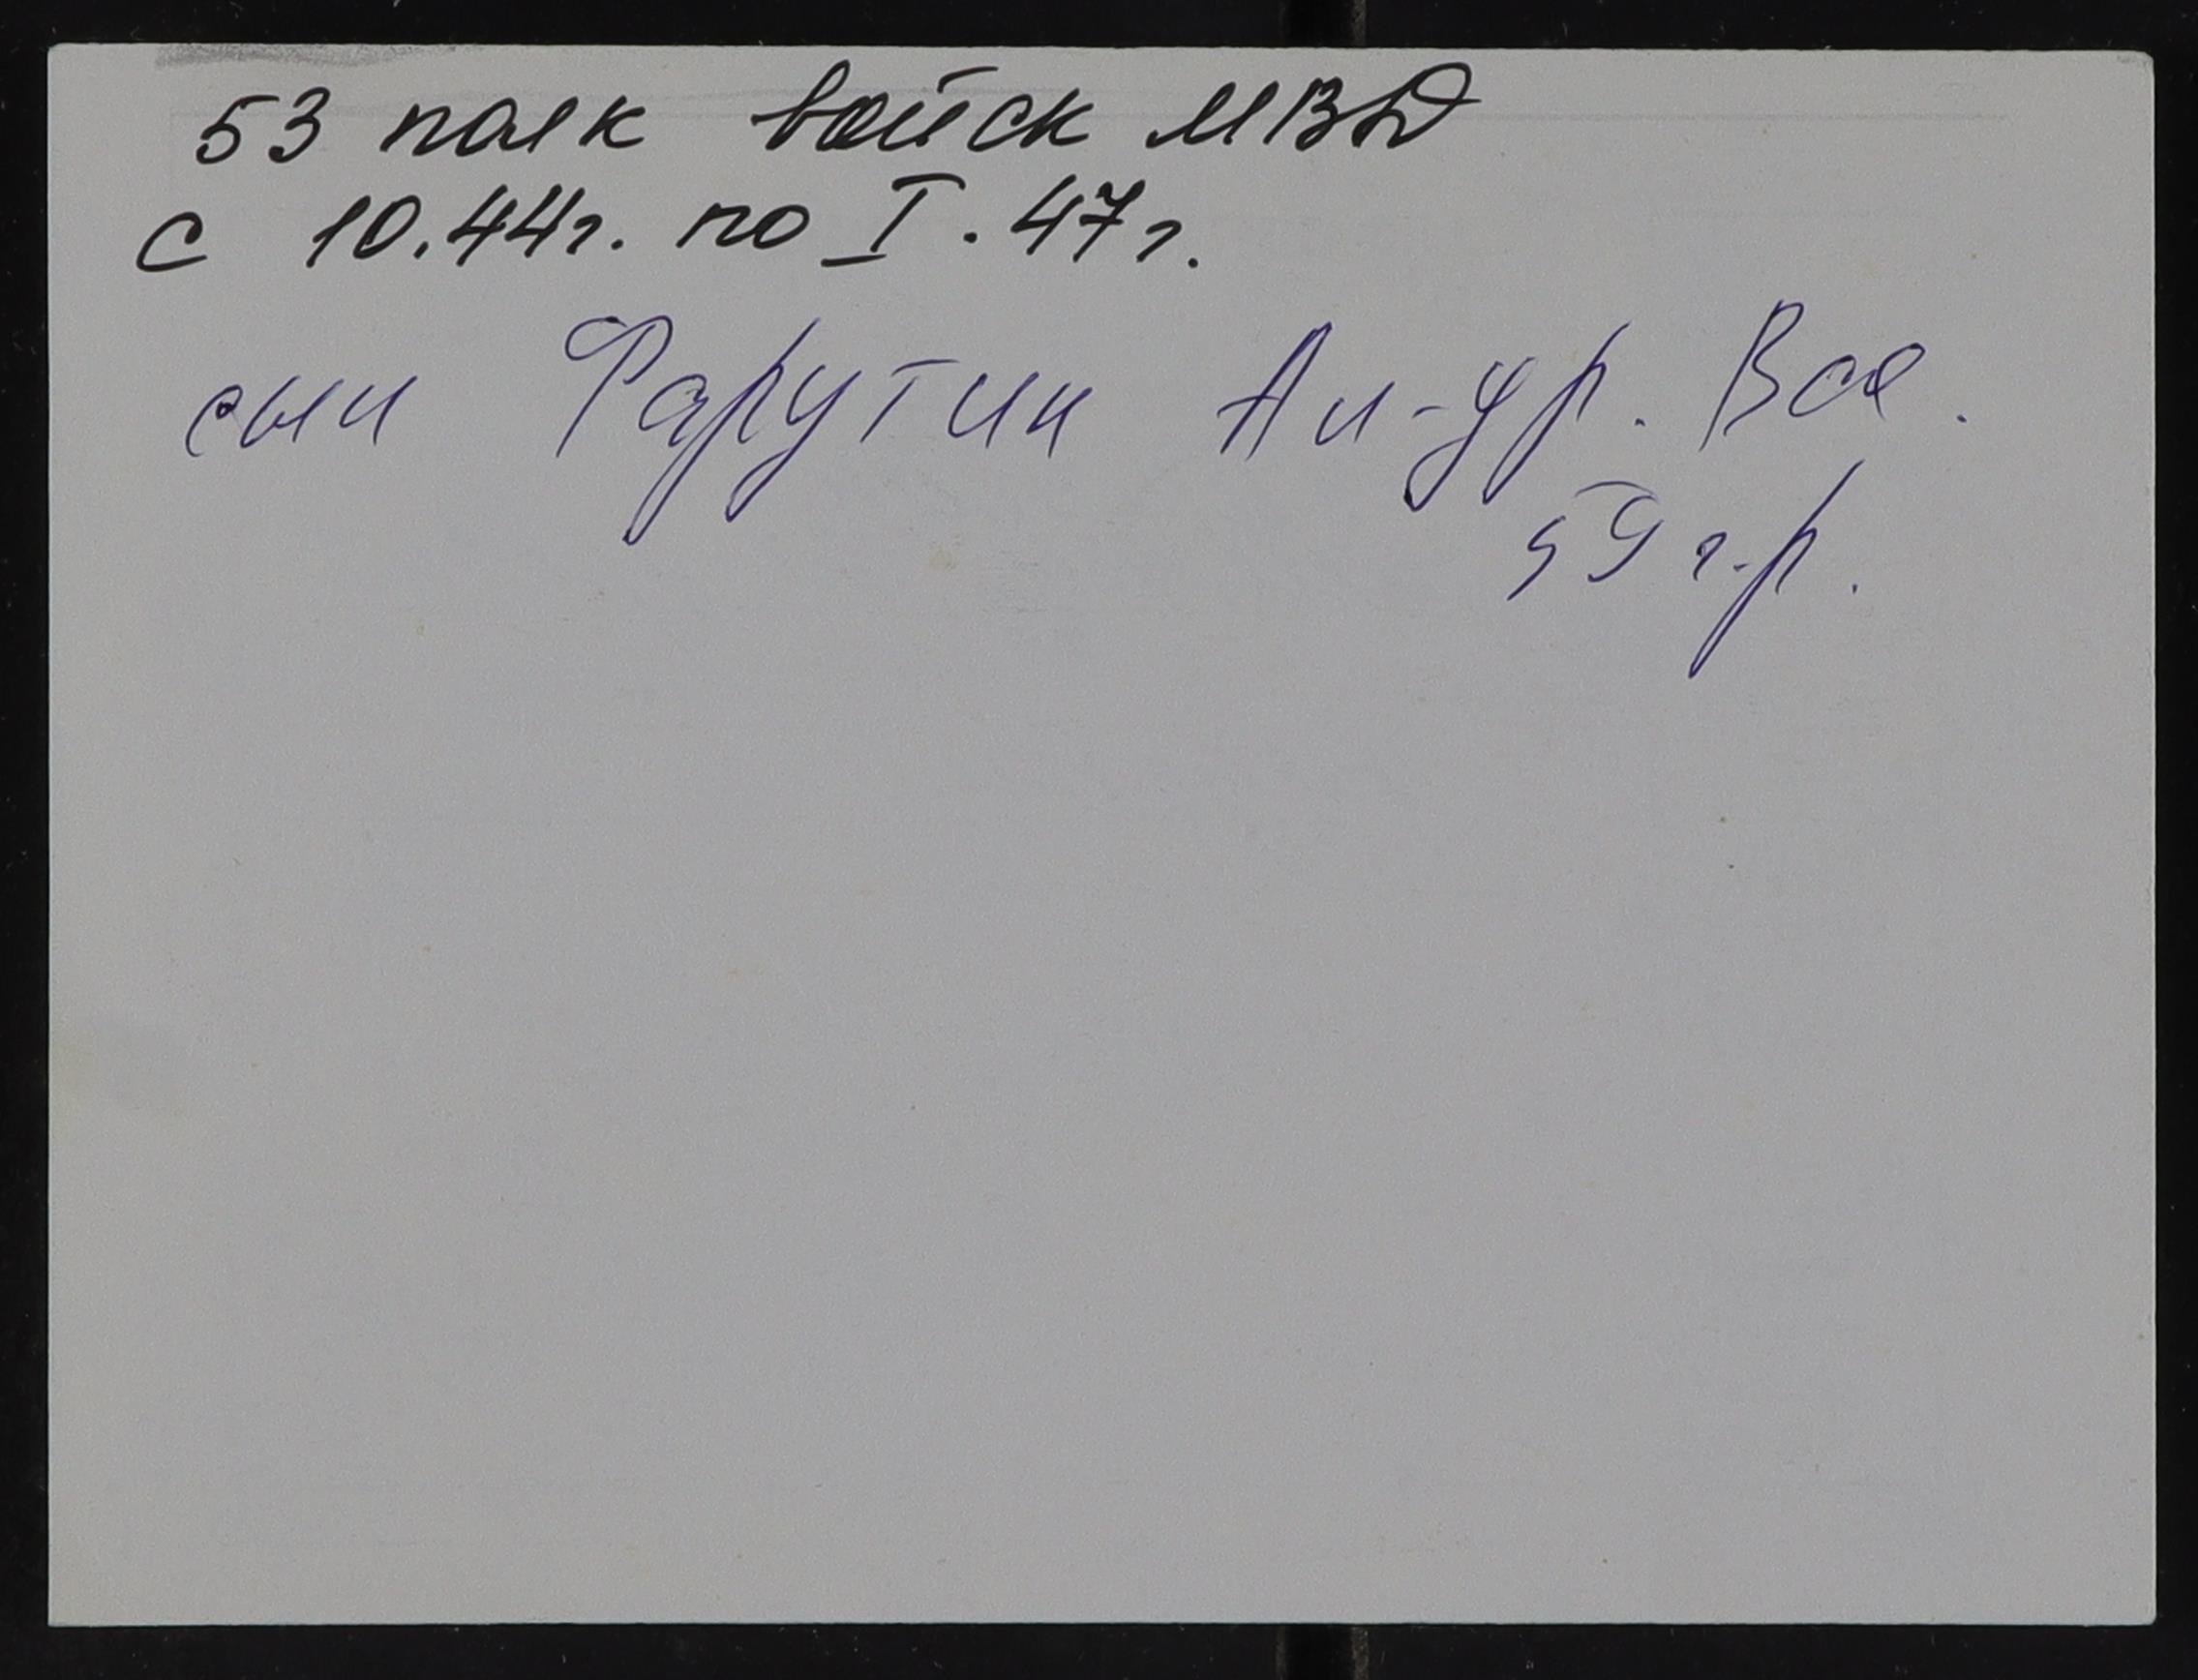 53 полк войск МВД
с 10.44г. по I. 47г.
сын Фарутин Ал-др. Вас.
59 г.р.